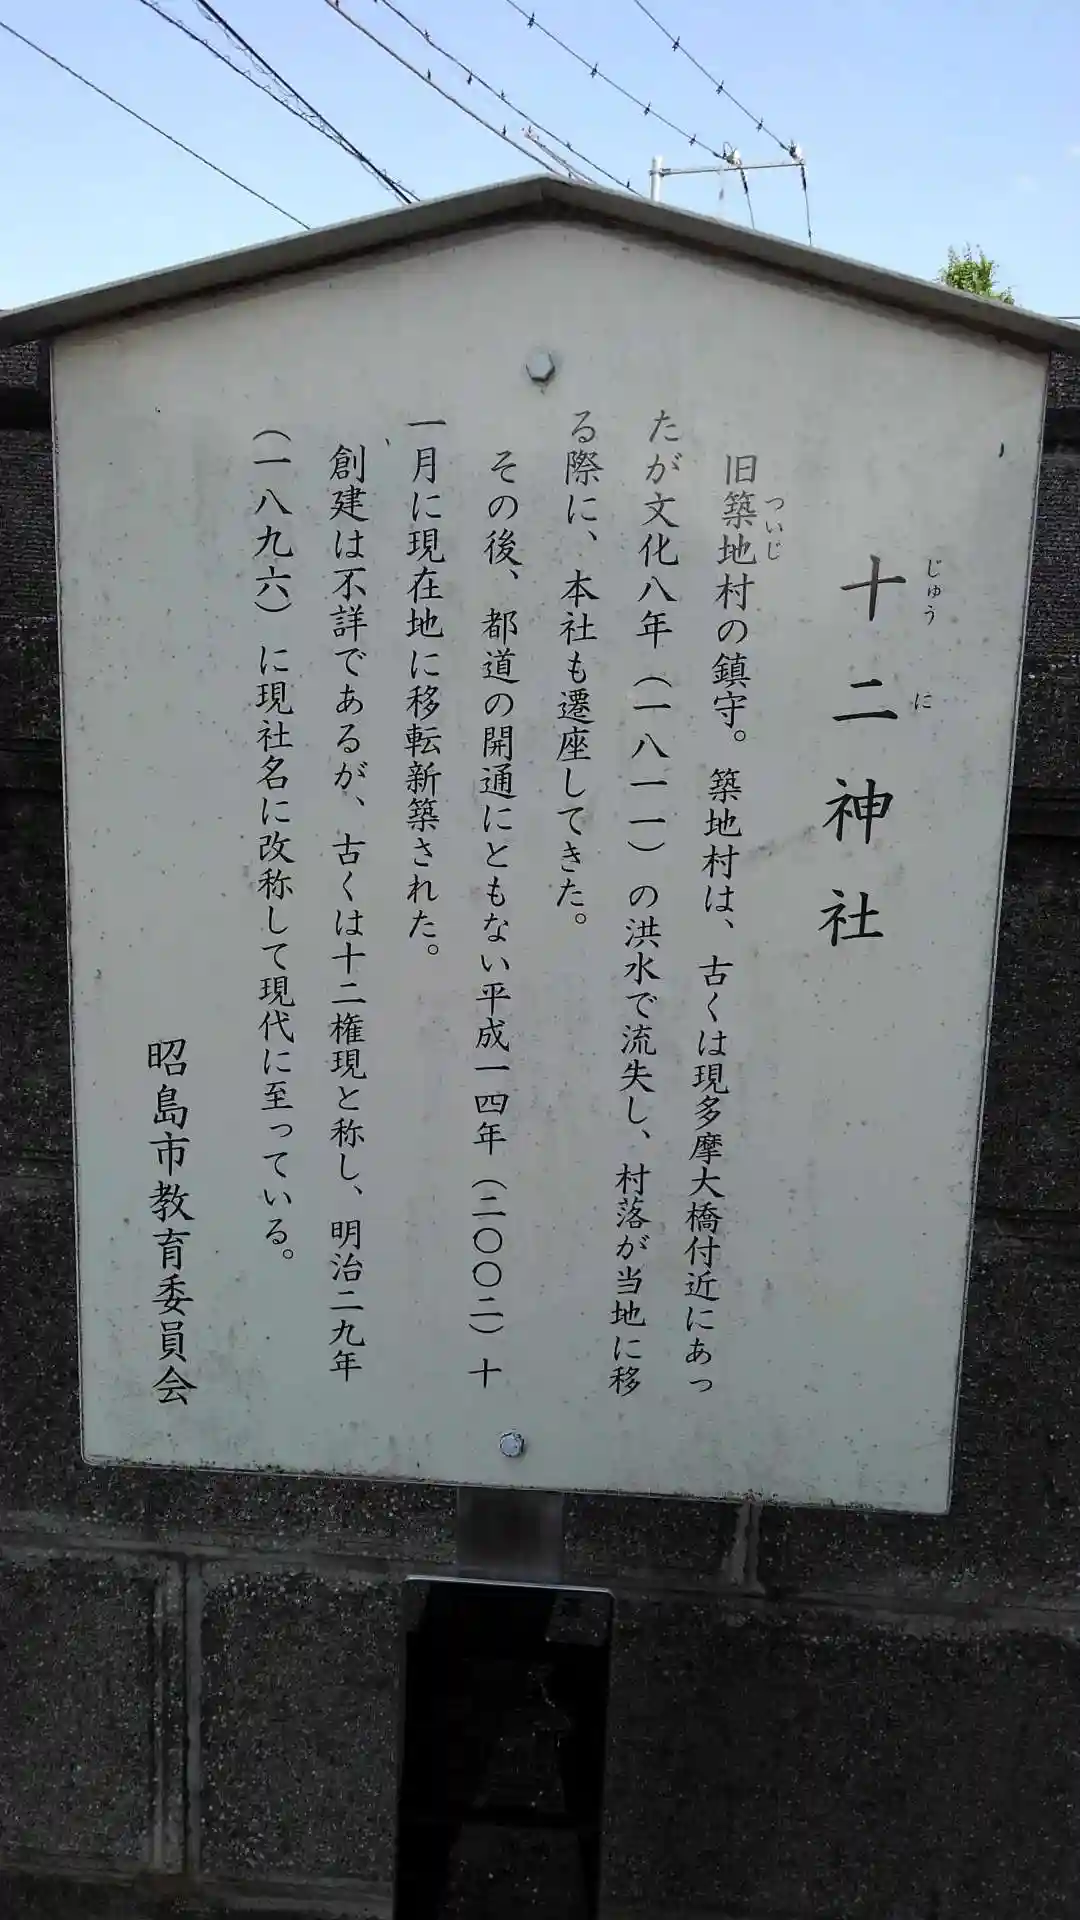 十二神社
じゅうに
旧築地村の鎮守。築地村は、古くは現多摩大橋付近にあっ
ついじ
たが文化八年(一八一一)の洪水で流失し、村落が当地に移
る際に、本社も遷座してきた。
その後、都道の開通にともない平成一四年(二〇〇二)十
一月に現在地に移転新築された。
創建は不詳であるが、古くは十二権現と称し、明治二九年
(一八九六)に現社名に改称して現代に至っている。
昭島市教育委員会